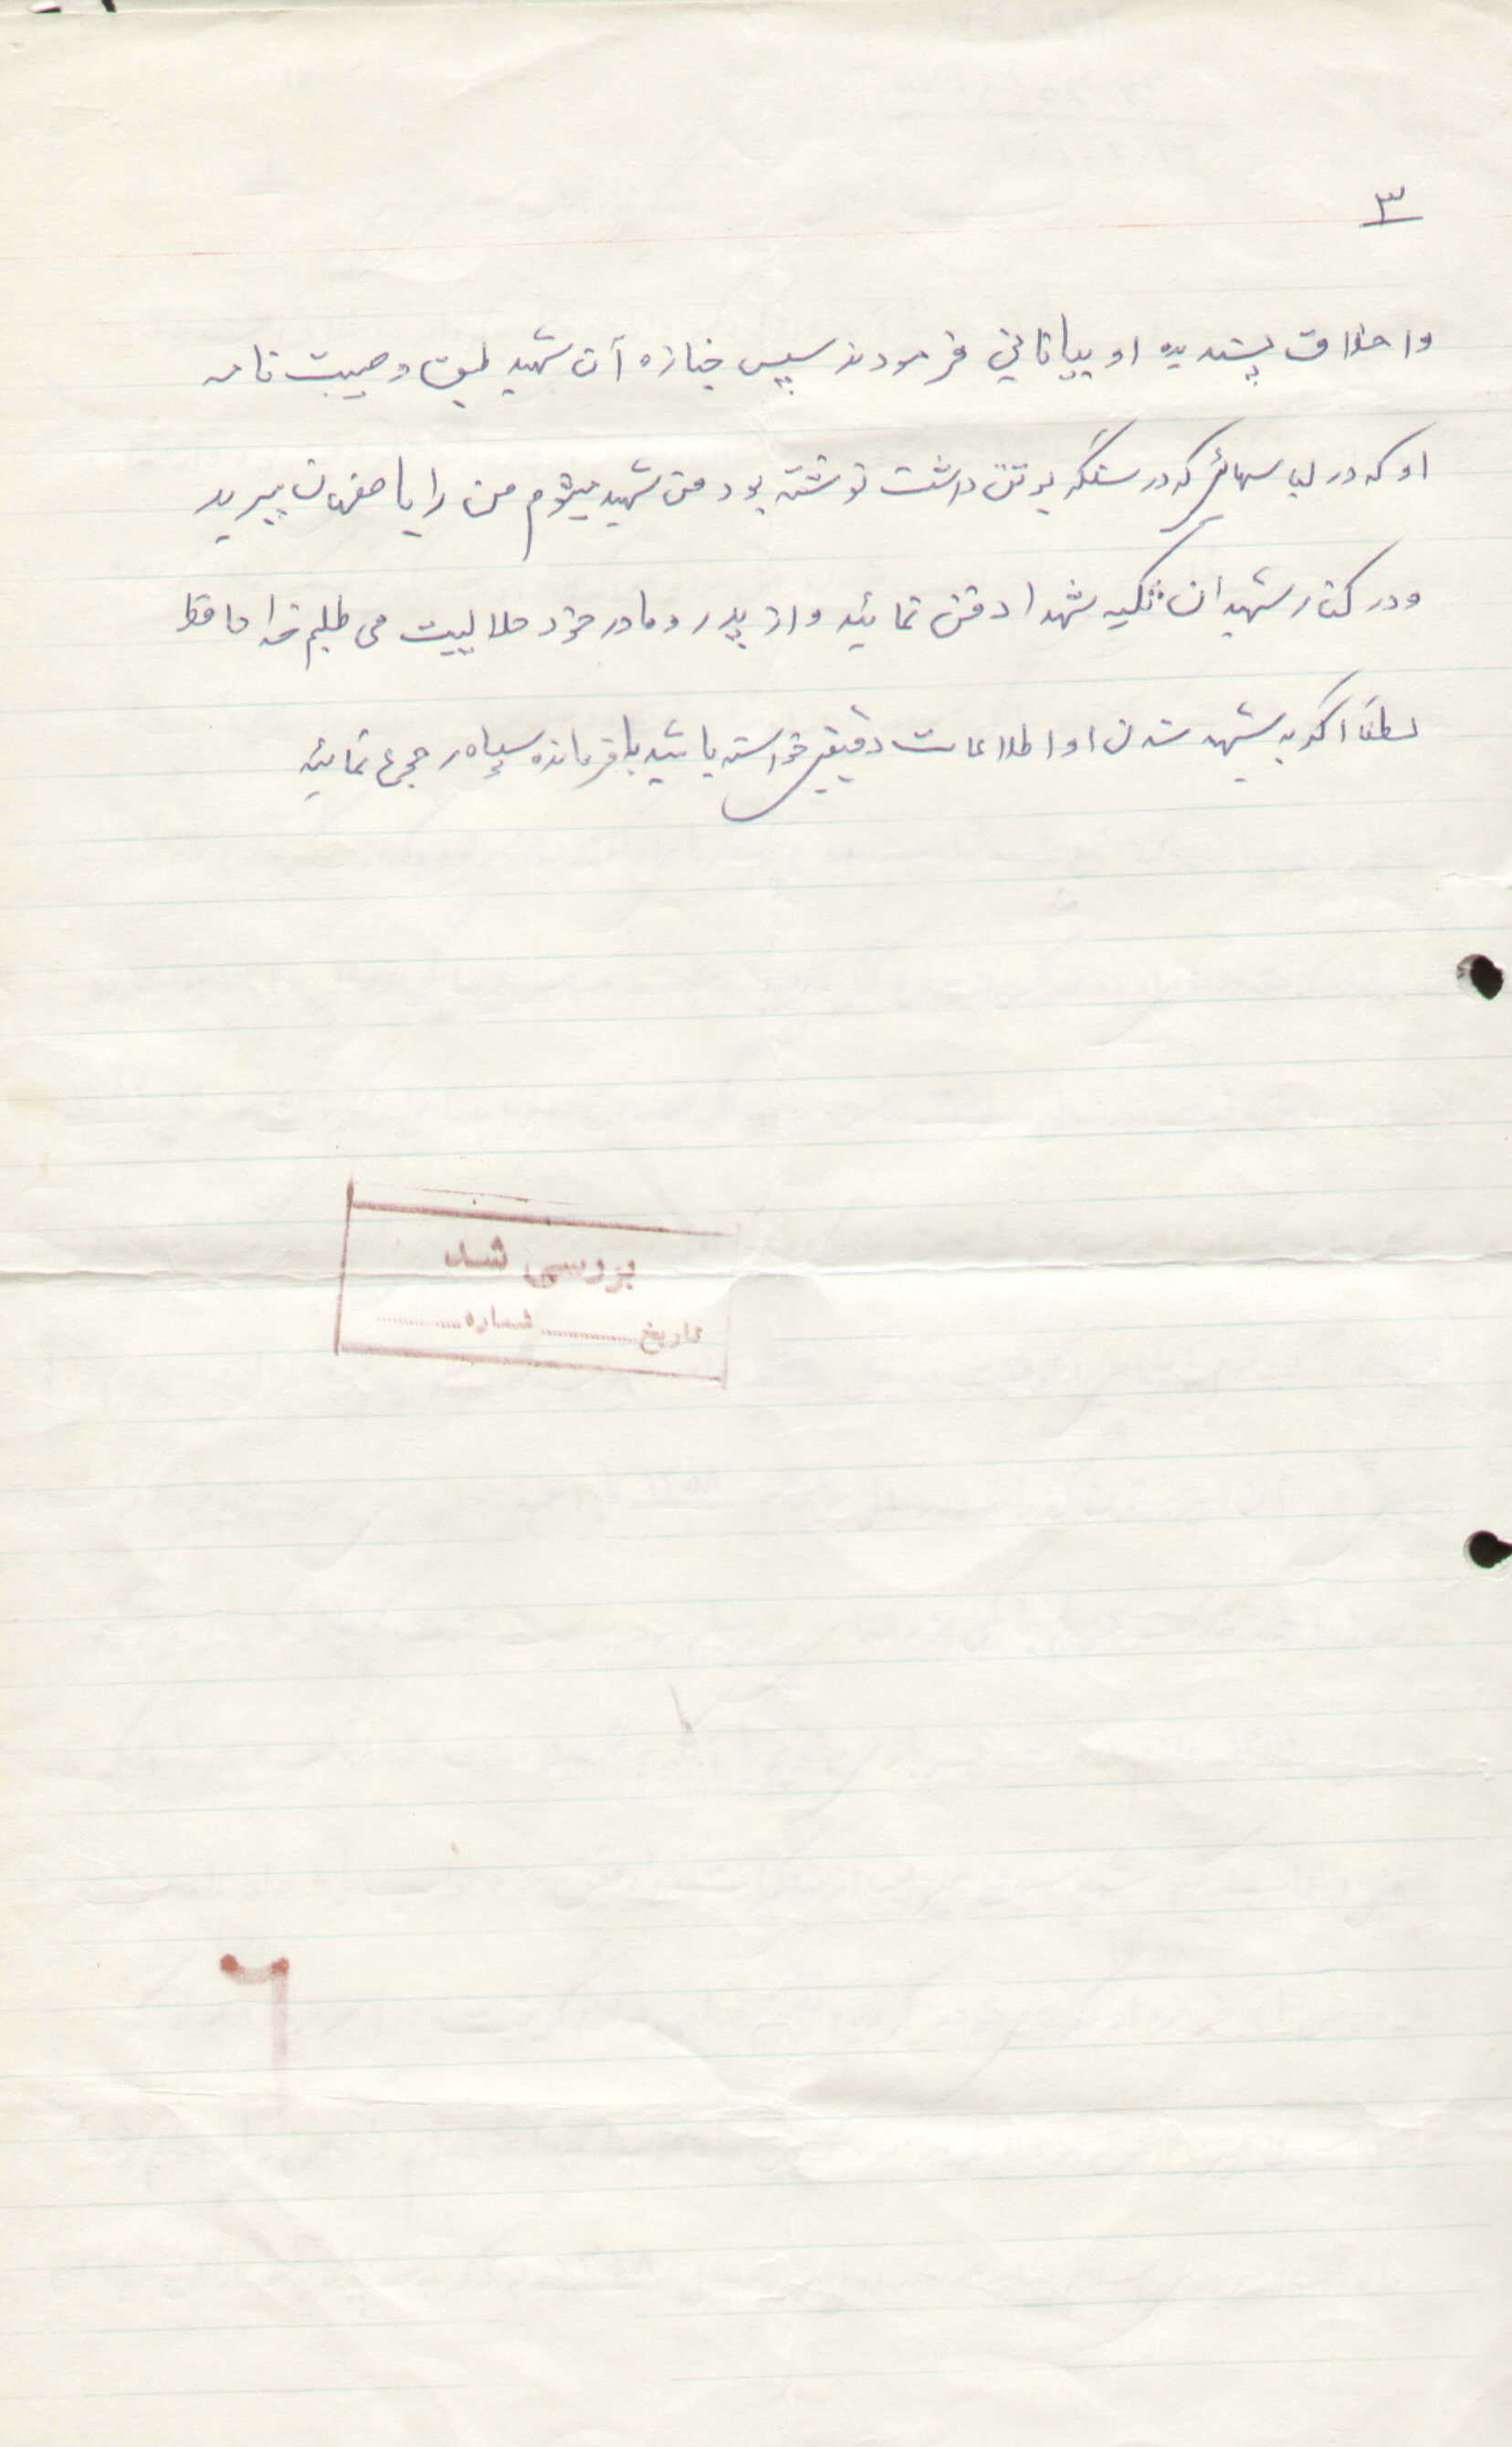 ۳
واخلاق پسندیده او بیاناتی فرمودند سپس جنازه آن شهید طبق وصیت نامه
او که در لباسهائی که در سنگر بو تن داشت نوشته بود من شهید میشوم من را باصفهان ببرید
و در کنار شهیدان تکیه شهدا دفن نمائید و از پدر و مادر خود حلالیت می طلبم خداحافظ
لطفا اگر به شهید شدن او اطلاعات دقیقی خواسته باشید با فرمانده سپاه رجوع نمائید
بررسی شد
تاریخ .............. شماره ..............